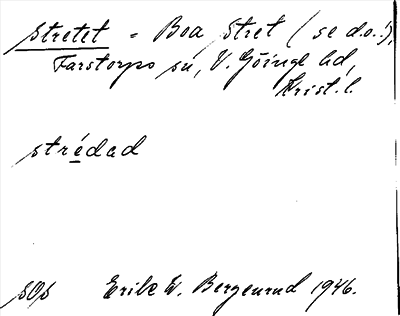 stretet = Boa stret (se d.o.!),
Farstorps sn, V. Göinge hd,
Krist. l.
strédad
sOs Erik W. Bergenrud 1946.